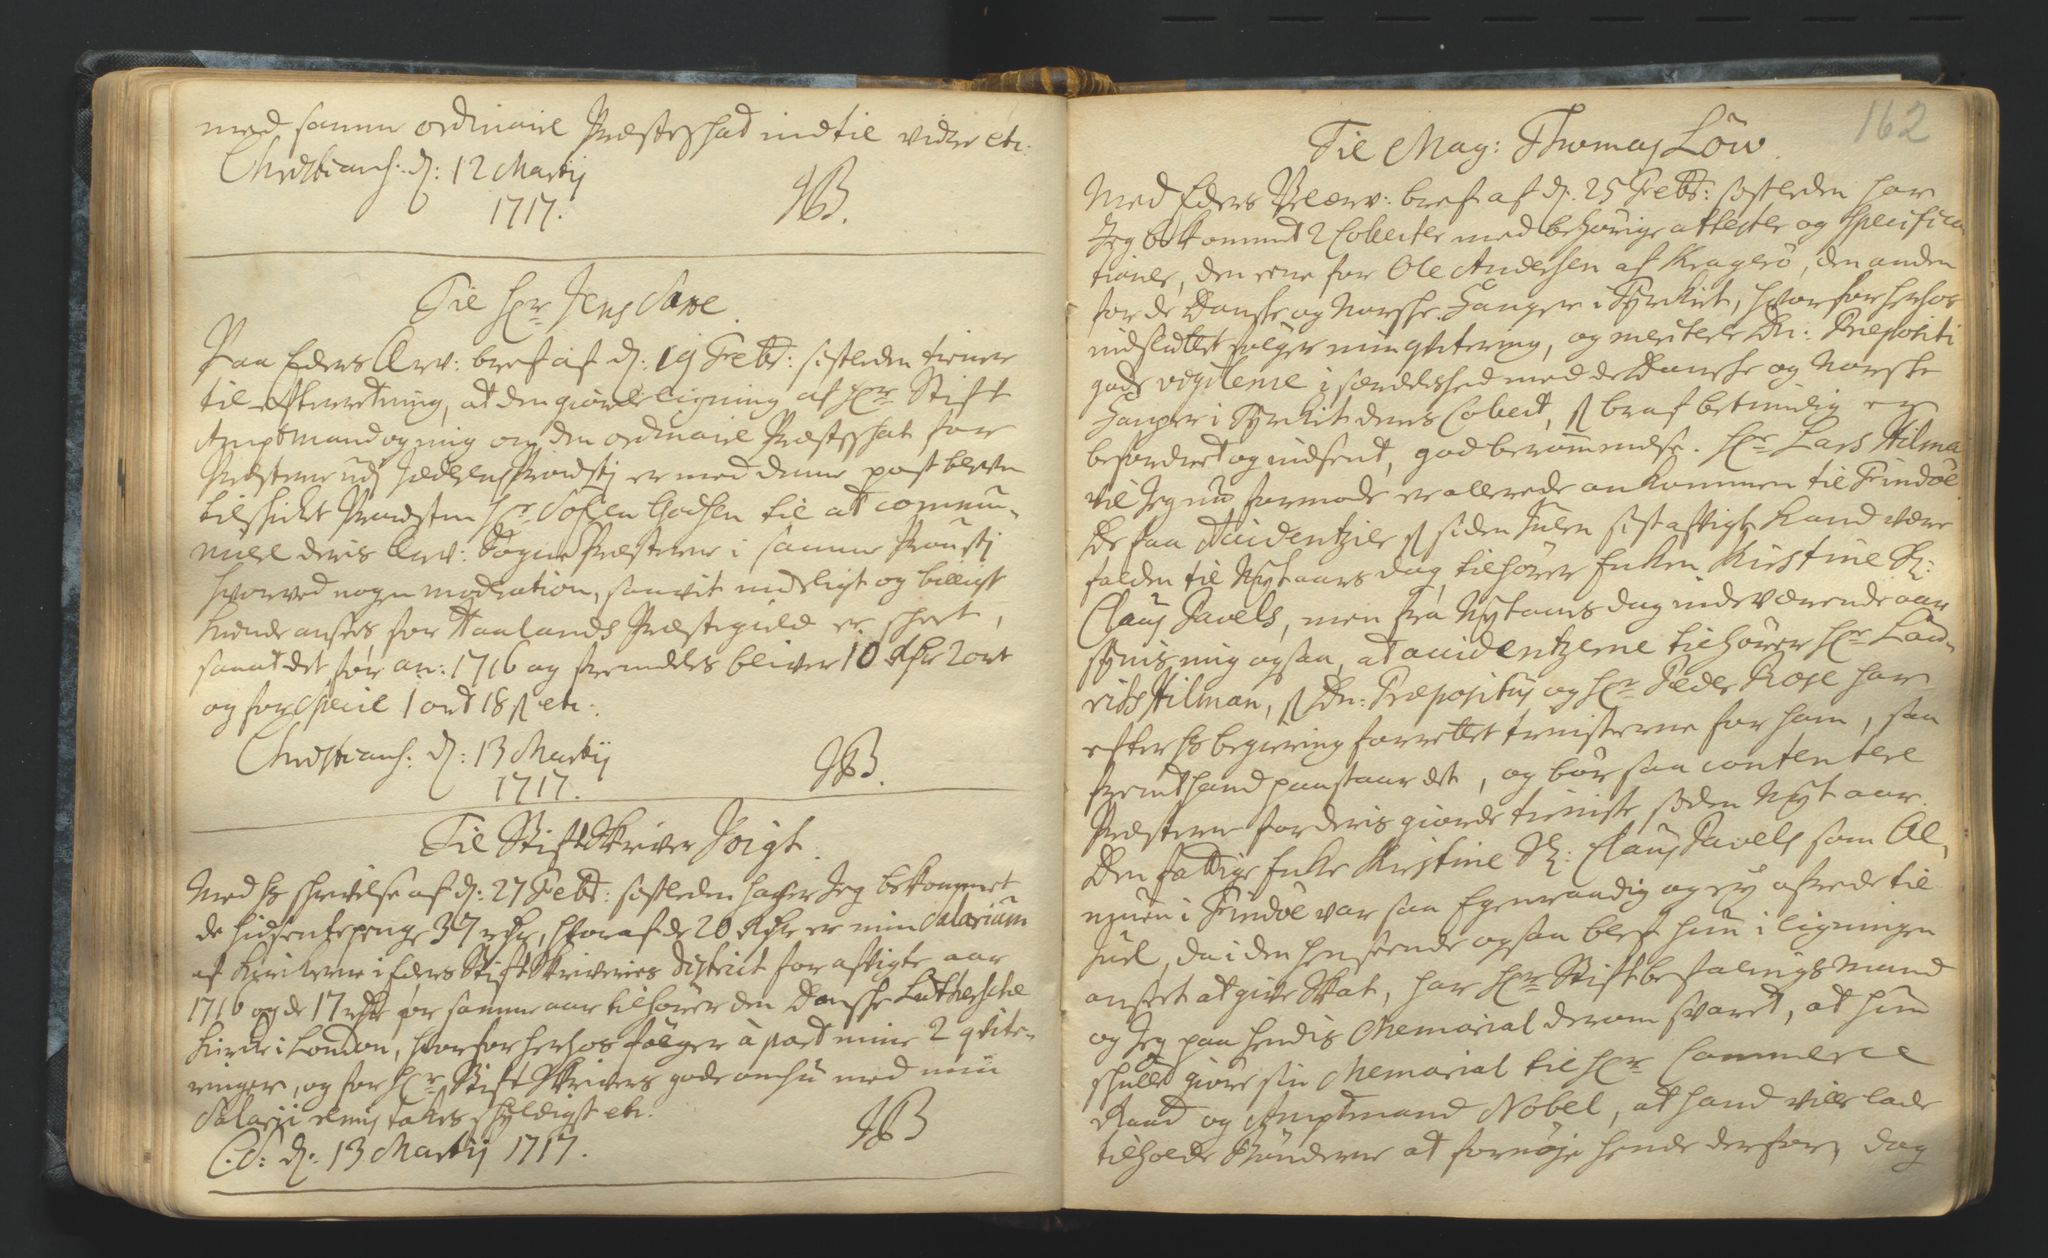 med samme ordinaire Præsteskat indtil videre etc.
Christians. d: 12 Martij
1717.
JB.
Til Hr Jens Saxe.
Paa Eders Ærv: bref af d: 19 Febr: sistleden tiener
til efterretning, at den giorde ligning af Hr Stift
Amptmand og mig om den ordinaire Præsteskat for
Præsterne udj Jedderens Prousti er med denne post bleven
tilskicket Prousten Hr Godtzen til at commu-
nicere deris Ærv: Sogne Præsterne i samme Prousti
hvorved nogen moderation, saavit med ligt og billigt
kunde ansees for Haalands Præstegield er skeet,
saa at det for an: 1716 og fremdeles bliver 10 Rdr 2 ort
og for specie 1 ort 18 s etc.
Christians. d: 13 Martij
1717.
JB.
Til StiftSkriver Voigt.
Med hs skrivelse af d: 27 Febr: sistleden hafver Jeg bekommet
de hidsendte penge 37 rdr, hvoraf de 20 Rdr er min Salarium
af Kirkerne i Eders StiftSkriveries District for afvigte aar
1716 og de 17 rdr for samme aar tilhører den Danske Lutherske
Kirke i London, hvorfor herhos følger à part mine 2 qvite-
ringer, og for Hr Stift Skrivers gode omhu med min
Salarii takes skyldigst etc.
C.S: d: 13 Martij 1717.
JB
162
Til Mag: Thomas Löw.
Med Eders Velærv: bref af d: 25 Febr: sistleden har
Jeg bekommet 2 Collecter med behörige attester og Specifica
tioner, den eene for Ole Andersen af Kragerö, den anden
for de Danske og Norske Fanger i Tyrkiet, hvorfor herhos
indsluttet følger min qvitering, og meriterer Dn: Præpositi
gode vigilence i særdeleshed med de Danske og Norske
Fanger i Tyrkiet deres Collect, saa betimelig er
befordret og indsent, god berømmelse. Hr Lars Hilma
vil Jeg nu formode er allerede ankommen til Findöe.
De faa Accidentzier siden Julen sist afvigt kand være
falden til Nyt aars dag, tilhører Enken Kirstine Sl:
Claus Pavels, men fra Nytaars dag indeværende aar
synis mig ogsaa, at accidentzerne tilhører Hr Lau-
rids Hilman, Dn: Præpositus og Hr Peder Rose har
efter hs begiering forrettet tienisterne for ham, saa
fremt hand paastaar det, og bör saa contentere
Præsterne for deris giorde tieniste siden Nyt aar.
Den fattige Enke Kirstine Sl: Claus Pavels som
i Findöe var saa Egenraadig og ey afrede til
Juel, da i den henseende ogsaa blef hun i ligningen
ansat at give Skat, har Hr Stiftbefalings Mand
og Jeg paa hendis Memorial derom svaret, at hun
skulle giöre sin Memorial til Hr Commerce
Raad og Amptmand Nobel, at hand ville lade
tilholde Bönderne at fornöje hende derfor, dog